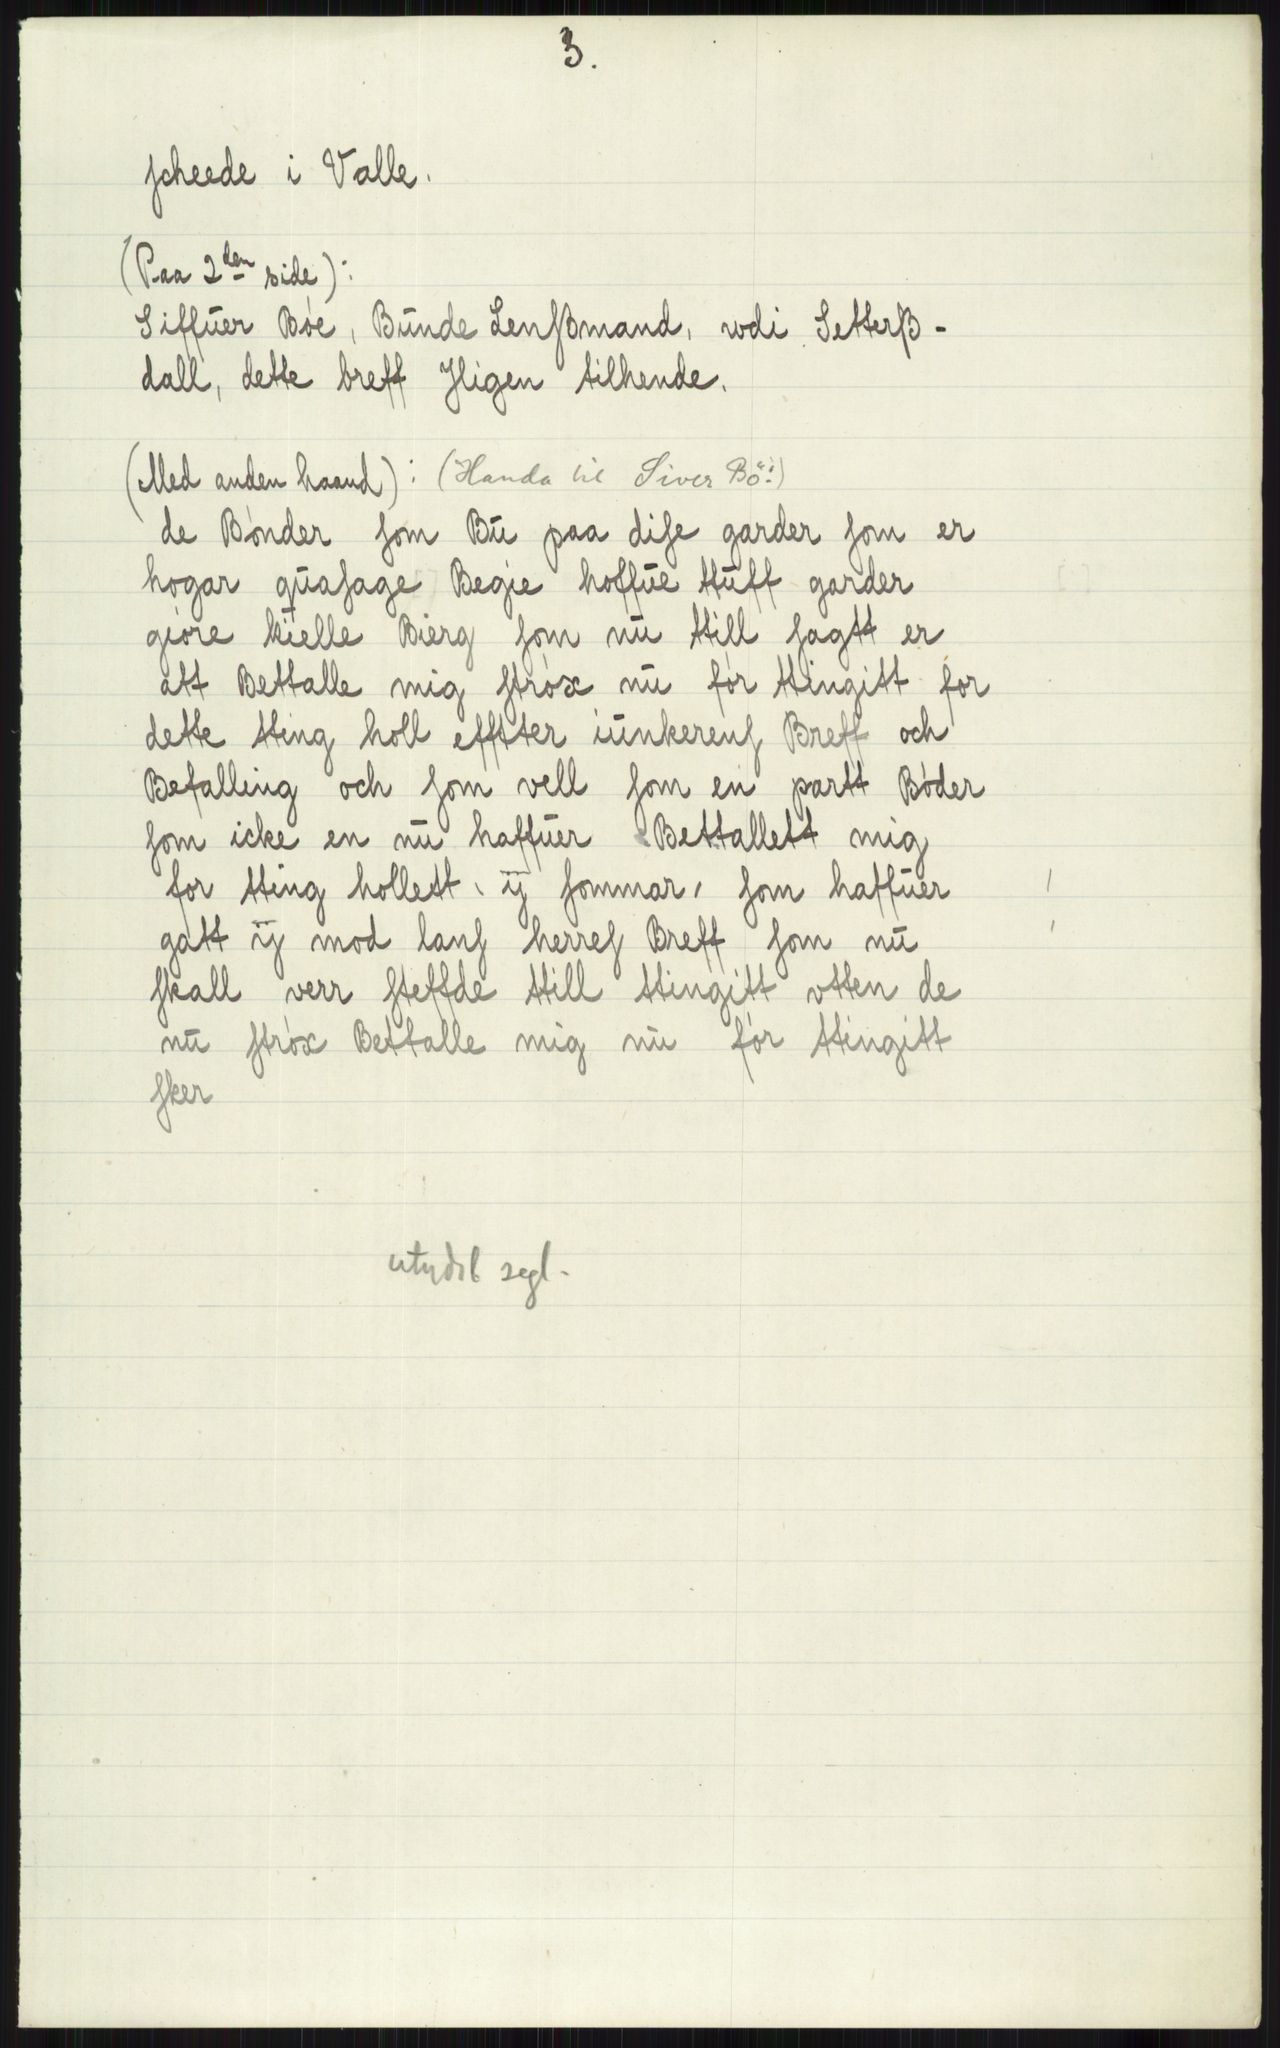 3.
scheede i Valle.
(Paa 2den side):
Siffuer Bóe, Bunde Lenßmand, wdi Setterß-
dall, dette breff Jligen tilhende.
(Med anden haand): (Handa til Siver Bö!)
de Bónder som Bu paa dise garder som er
hogar quasage Begie hoffue ttuff garder
gióre kielle Bierg som nu ttill sagtt er
att Bettalle mig stróx nu fór ttingitt for
dette tting holl effter iunkerens Breff och
Befalling och som vell som en partt Bóder
som icke en nu haffuer Bettallett mig
for tting hollett ij sommar, som haffuer
gatt ij mod lans herres Breff som nu
skall verr steffde ttill ttingitt vtten de
nu stróx Bettalle mig nu fór ttingitt
sker
utydel segl.